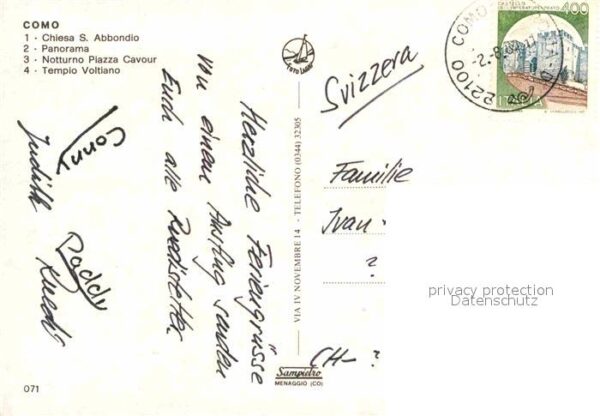 COMO
1 - Chiesa S. Abbondio
2 - Panorama
3 - Notturno Piazza Cavour
4 - Tempio Voltiano
FOTO LABOR
Herzliche Feriengrüsse
von einem Ausflug senden
Euch alle
Conny
Judith
Paddy
Ruedi
VIA IV NOVEMBRE 14 - TELEFONO (0344) 32305
Sampietro
MENAGGIO (CO)
071
400
ITALIA
22100 COMO
Svizzera
Familie
Ivan
?
CH- ?
privacy protection
Datenschutz